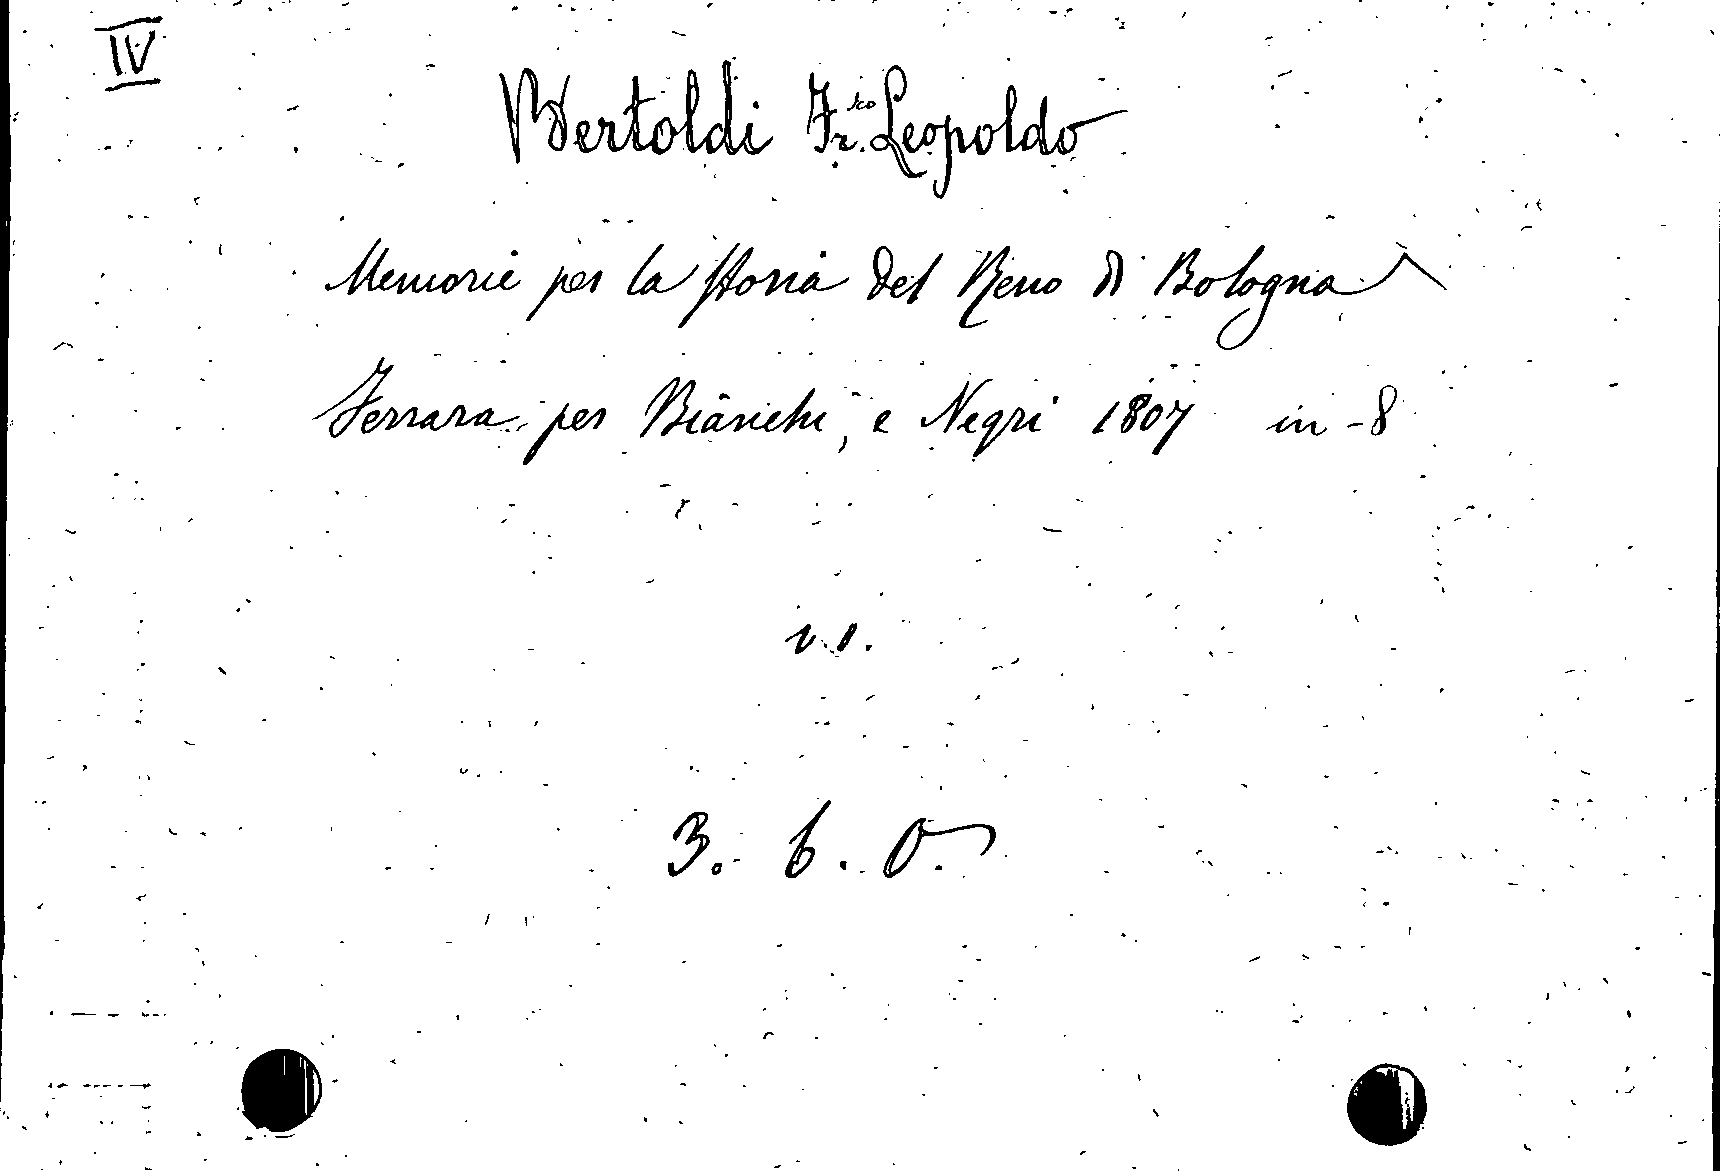 IV
Bertoldi Fr.co Leopoldo
Memorie per la storia del Reno di Bologna
Ferrara per Bianchi, e Negri 1807 in-8
3. 6. 0.